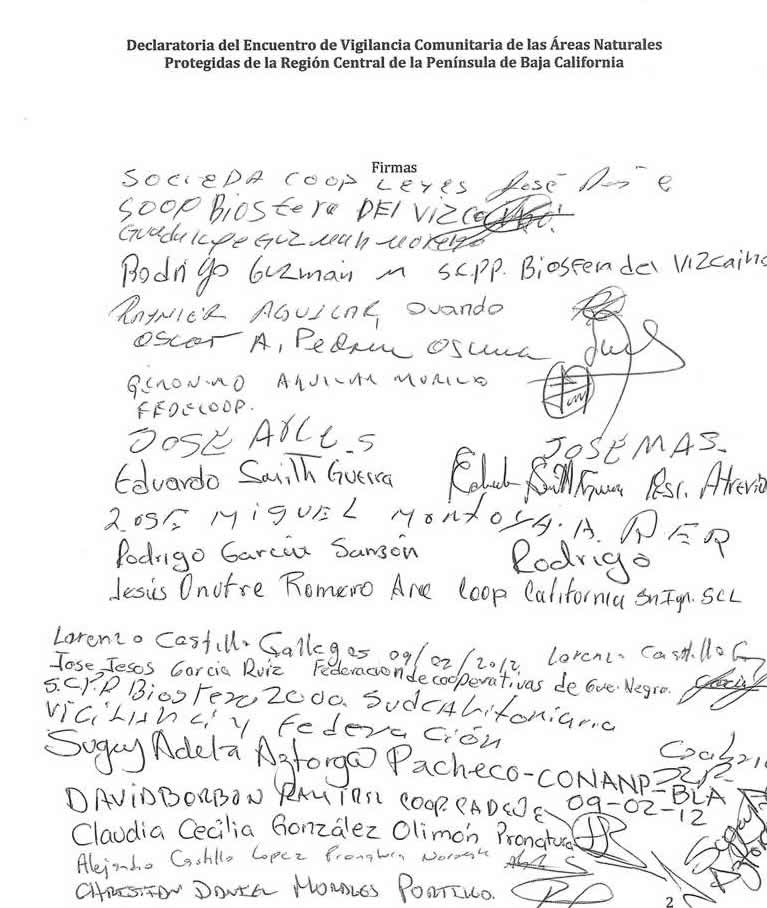 Declaratoria del Encuentro de Vigilancia Comunitaria de las Áreas Naturales
Protegidas de la Región Central de la Península de Baja California
Firmas
SOCIEDA COOP LEYES José
SOOP BIOSfera DEL VIZCAINO
Guadalupe Guzman Moreno
Rodrigo Guzmán M SCPP. Biosfera del Vizcaino
RAYNIER AGUILAR, Ovando
OSCAR A. Pedrin Osuna
GERONIMO AGUILAR MURILLO
FEDECOOP.
JOSÉ JOSE MAS.
Eduardo Smith Guerra Pesc. Atrevid
JOSE MIGUEL MONTOYA.
Rodrigo Garcia Sansón Rodrigo
Jesús Onofre Romero Arce Coop California Sn Ign. SCL
Lorenzo Castillo Gallegos 09/02/2012 Lorenzo Castillo G
Jose Jesos Garcia Ruiz Federacion de cooperativas de Gue. Negro.
S.C.P.P Biosfera 2000. Sudcaliforniana
VIGILIANCI y Federación
Sugey Adela Aztorga Pacheco-CONANP-BLA
DAVID BORBON RAMIREZ COOP CADEJE 09-02-12
Claudia Cecilia González Olimón Pronatura
Alejandro Castillo Lopez Pronatura Noroeste
CHRISTIAN DANIEL MORALES PORTILLO.
Sugey
2